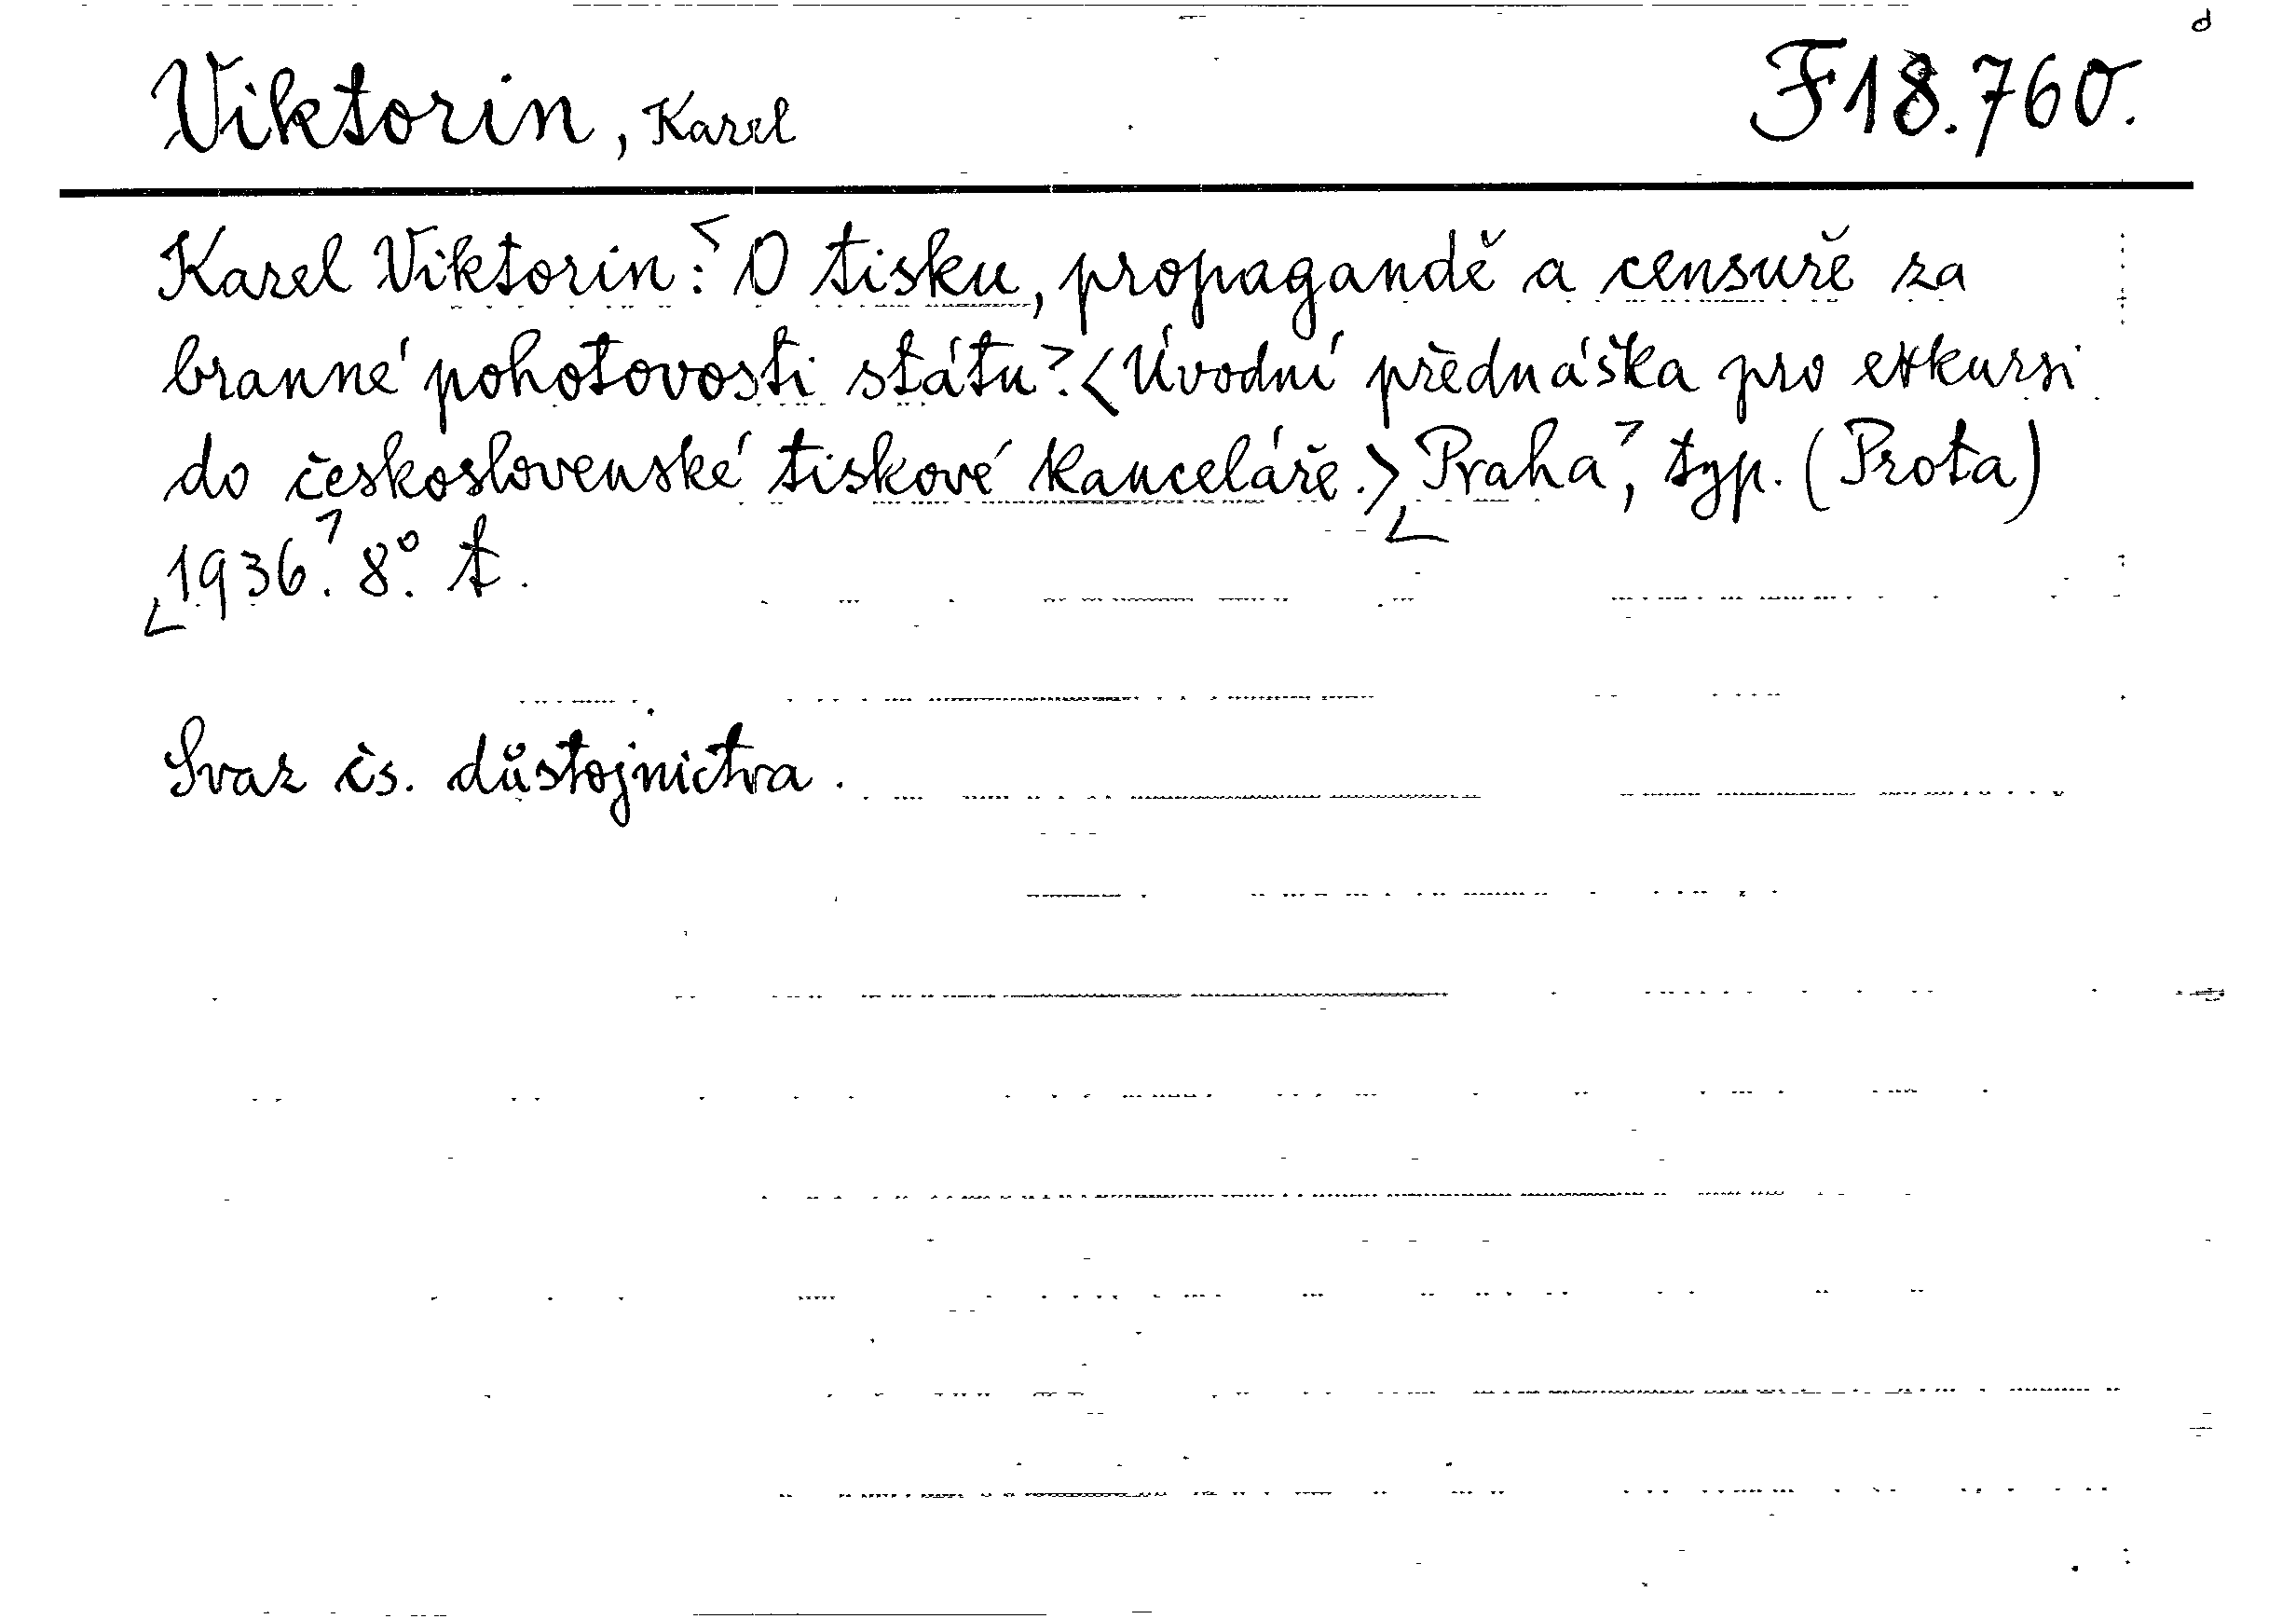 d
Viktorin, Karel F18.760.
Karel Viktorin: <O tisku, propagandě a censuře za
branné pohotovosti státu.> <Úvodní přednáška pro exkursi
do československé tiskové kanceláře.> Praha, typ. (Prota)
1936. 8°. t.
Svaz čs. důstojnictva.